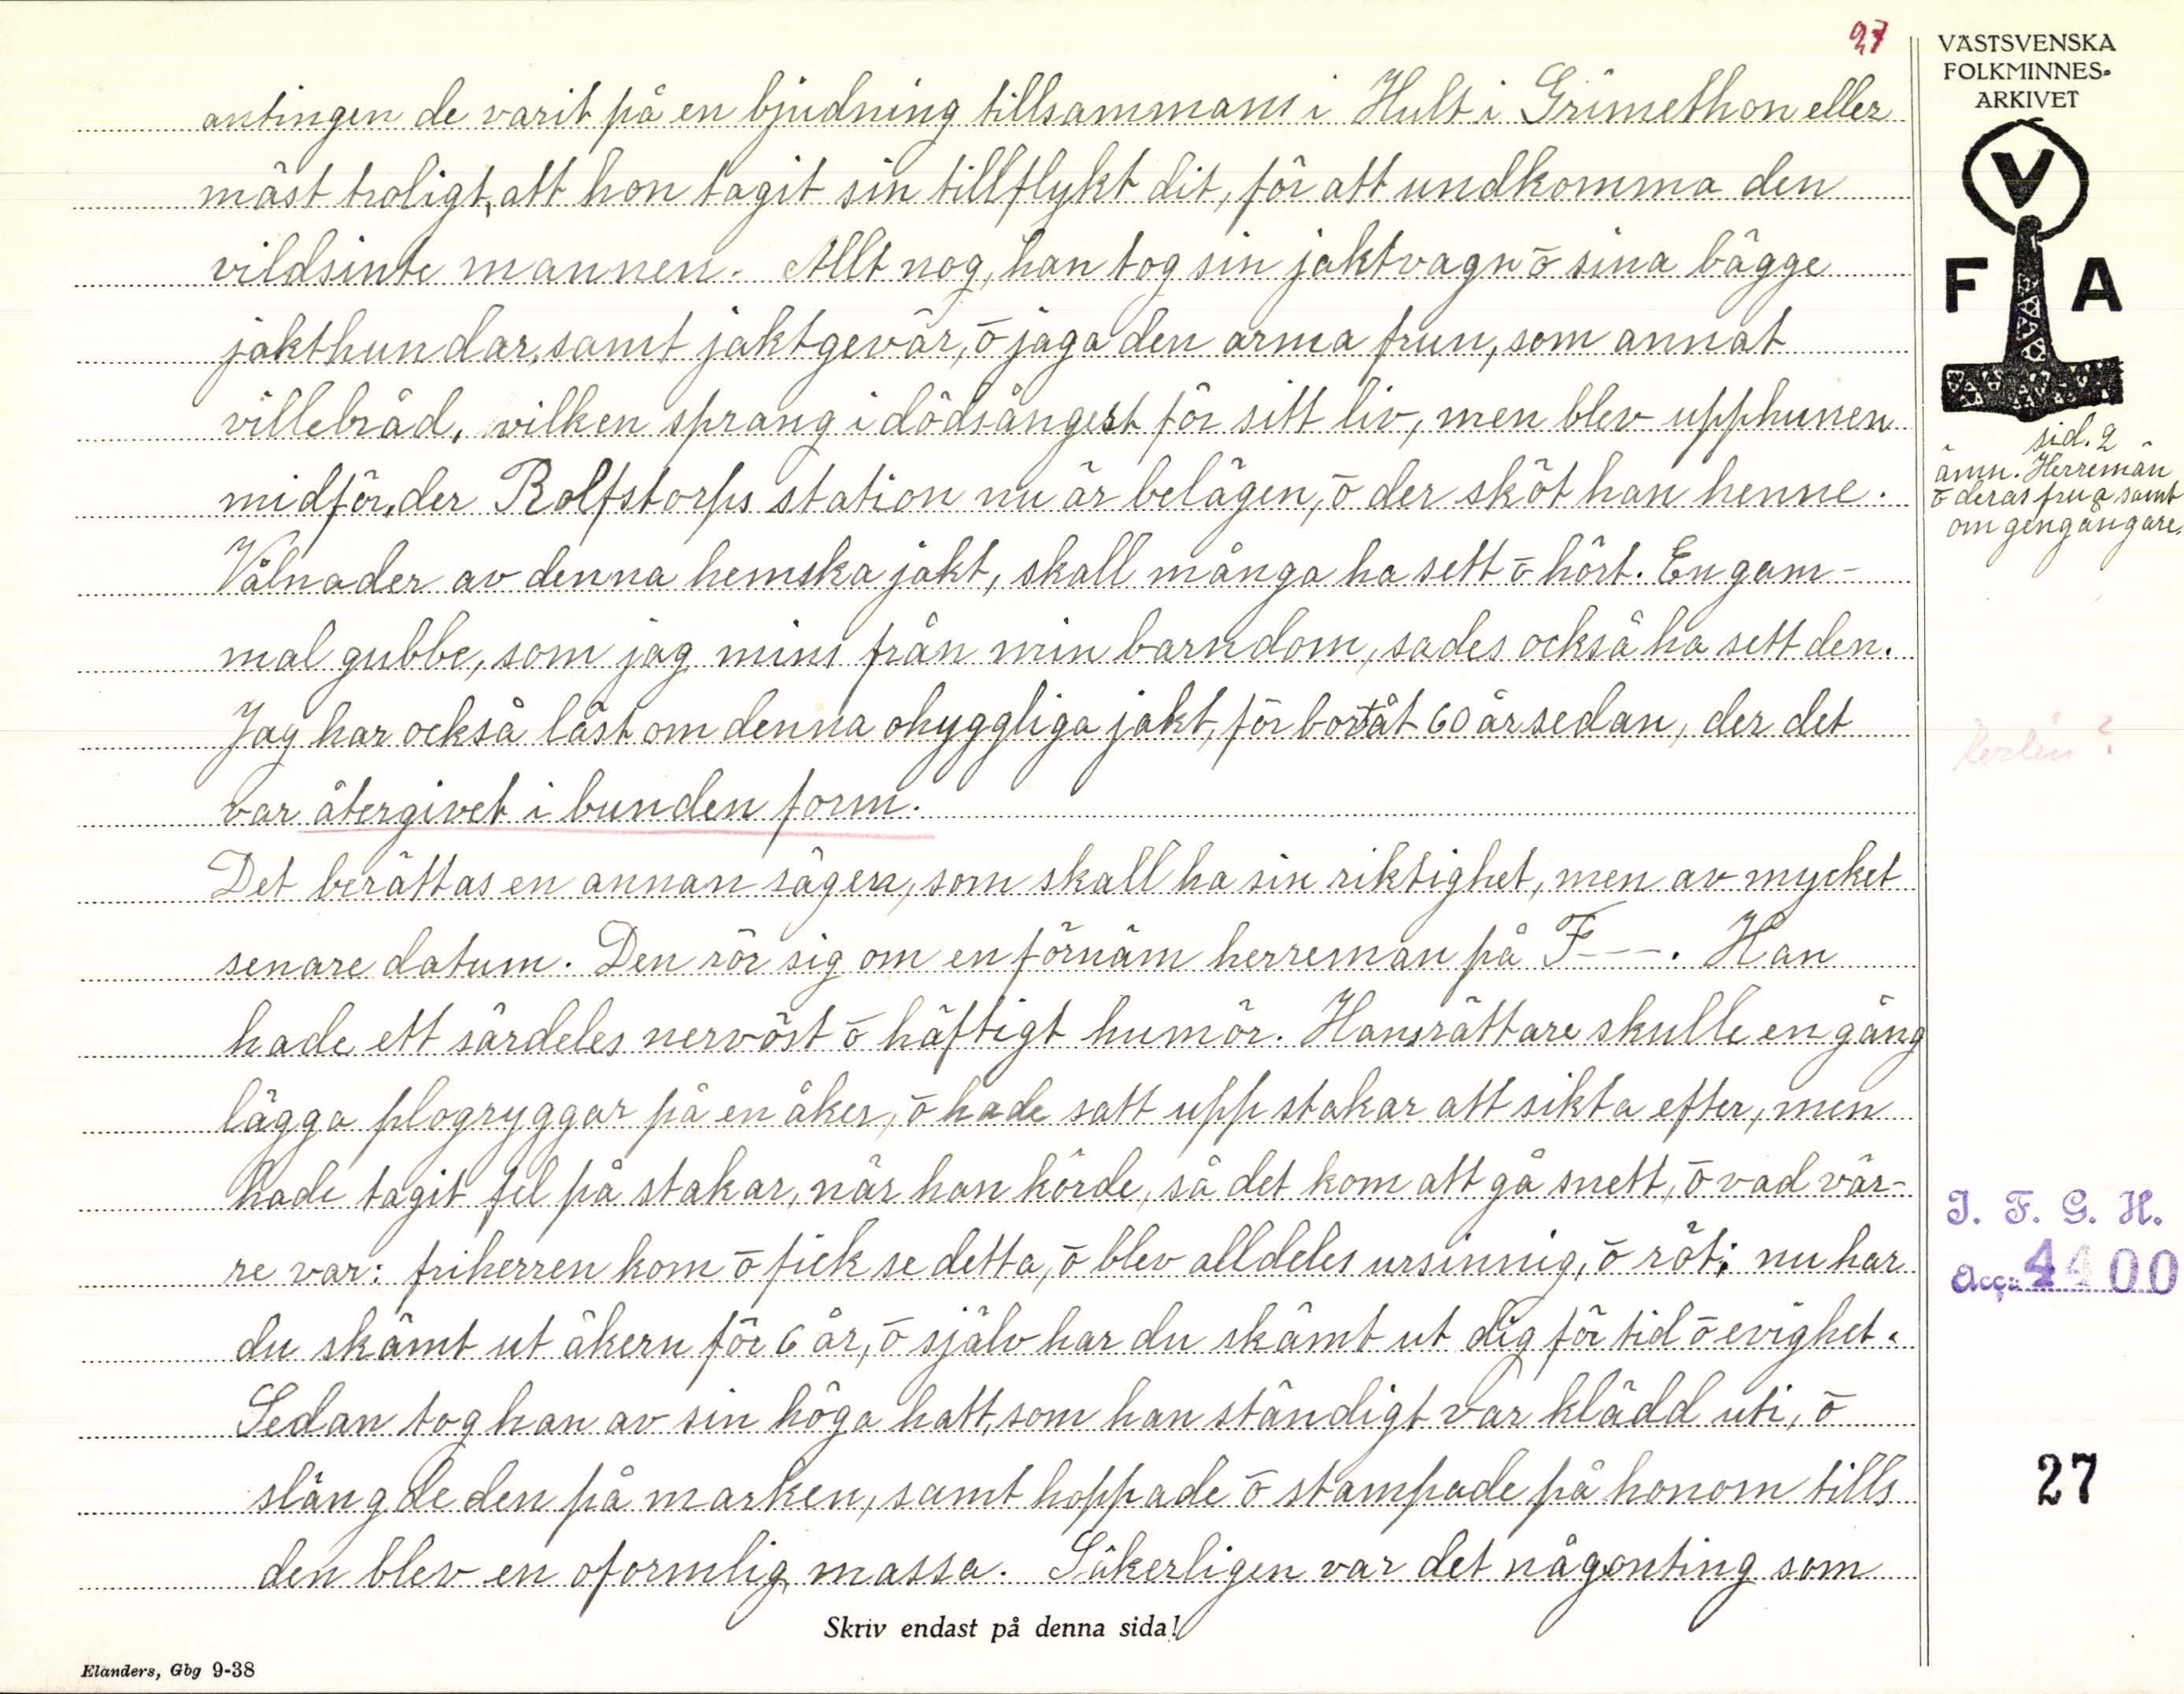 27
VÄSTSVENSKA
FOLKMINNES-
ARKIVET
V
F A
antingen de varit på en bjudning tillsammans i Hult i Grimethon eller
mäst troligt, att hon tagit sin tillflykt dit, för att undkomma den
vildsinte mannen. Allt nog, han tog sin jaktvagn ō sina bägge
jakthundar, samt jaktgevär, ō jaga den arma frun, som annat
villebråd, vilken sprang i dödsångest för sitt liv, men blev upphunen
midför, der Rolfstorps station nu är belägen, ō der sköt han henne.
Vålnader av denna hemska jakt, skall många ha sett ō hört. En gam-
mal gubbe, som jag mins från min barndom, sades också ha sett den.
Jag har också läst om denna ohyggliga jakt, för bortåt 60 år sedan, der det
var återgivet i bunden form.
Det berättas en annan sägen, som skall ha sin riktighet, men av mycket
senare datum. Den rör sig om en förnäm herreman på F---. Han
hade ett särdeles nervöst ō häftigt humör. Hans rättare skulle en gång
lägga plogryggar på en åker, ō hade satt upp stakar att sikta efter, men
hade tagit fel på stakar, när han körde, så det kom att gå snett, ō vad vär-
re var: friherren kom ō fick se detta, ō blev alldeles ursinnig, ō röt: nu har
du skämt ut åkern för 6 år, ō själv har du skämt ut dig för tid ō evighet.
Sedan tog han av sin höga hatt, som han ständigt var klädd uti, ō
slängde den på marken, samt hoppade ō stampade på honom tills
den blev en oformlig massa. Säkerligen var det någonting som
sid. 2
ämn. Herremän
ō deras frua samt
om gengångare.
I. F. G. H.
Acc. 4400
27
Skriv endast på denna sida!
Elanders, Gbg 9-38